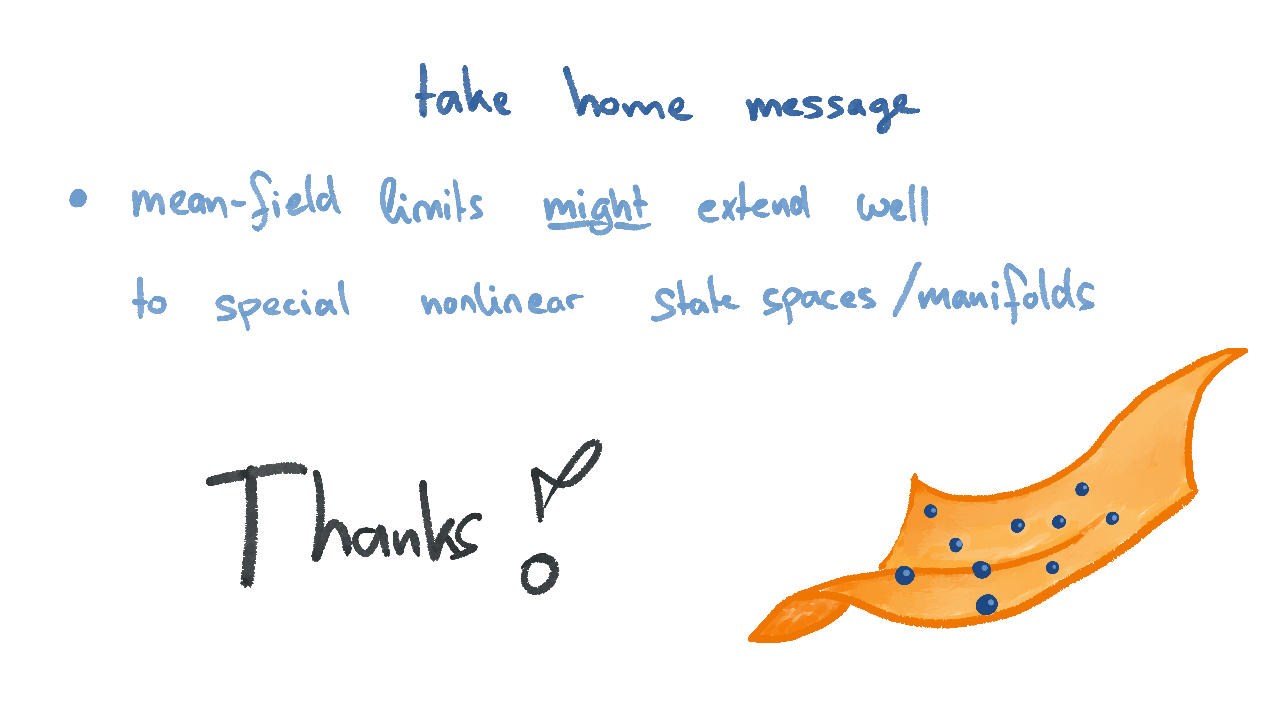 take home message
• mean-field limits might extend well
to special nonlinear state spaces/manifolds
Thanks!